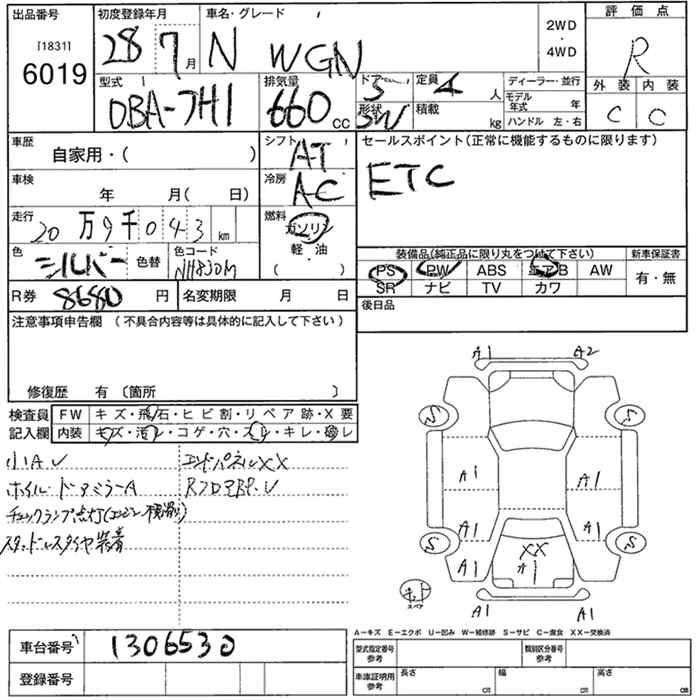 出品番号 [1831] 6019
初度登録年月 28 7月
車名・グレード N WGN
2WD・4WD
評価点 R
外装 C 内装 C
型式 DBA-JH1
排気量 660 cc
ドア 5 形状 SW
定員 4人
積載 kg
ディーラー・並行
モデル年式 年
ハンドル 左・右
車歴 自家用・( )
シフト AT
車検 年 月( 日)
冷房 AC
走行 20万9千043km
燃料 ガソリン・軽・油 ( )
色 シルバー 色替
色コード NH830M
R券 8680円
名変期限 月 日
セールスポイント(正常に機能するものに限ります)
ETC
装備品(純正品に限り丸をつけて下さい)
PS PW ABS エアB AW
SR ナビ TV カワ
新車保証書 有・無
後日品
注意事項申告欄 (不具合内容等は具体的に記入して下さい)
修復歴 有 〔箇所 〕
検査員記入欄
FW キズ・飛石・ヒビ割・リペア跡・X要
内装 キズ・汚れ・コゲ・穴・スレ・キレ・破レ
小キA U エンドパネルXX
ホイル・ドアミラーA
チェックランプ点灯(エンジン 横滑り)
スタッドレスタイヤ装着
A1 A2
S S
A1 A1
A1 A1
S S
A1 XX A1
A1
スペア
A1 A1
A－キズ E－エクボ U－凹み W－補修跡 S－サビ C－腐食 XX－交換済
車台番号 1306530
登録番号
型式指定番号 参考
類別区分番号 参考
車庫証明用 参考
長さ cm
幅 cm
高さ cm